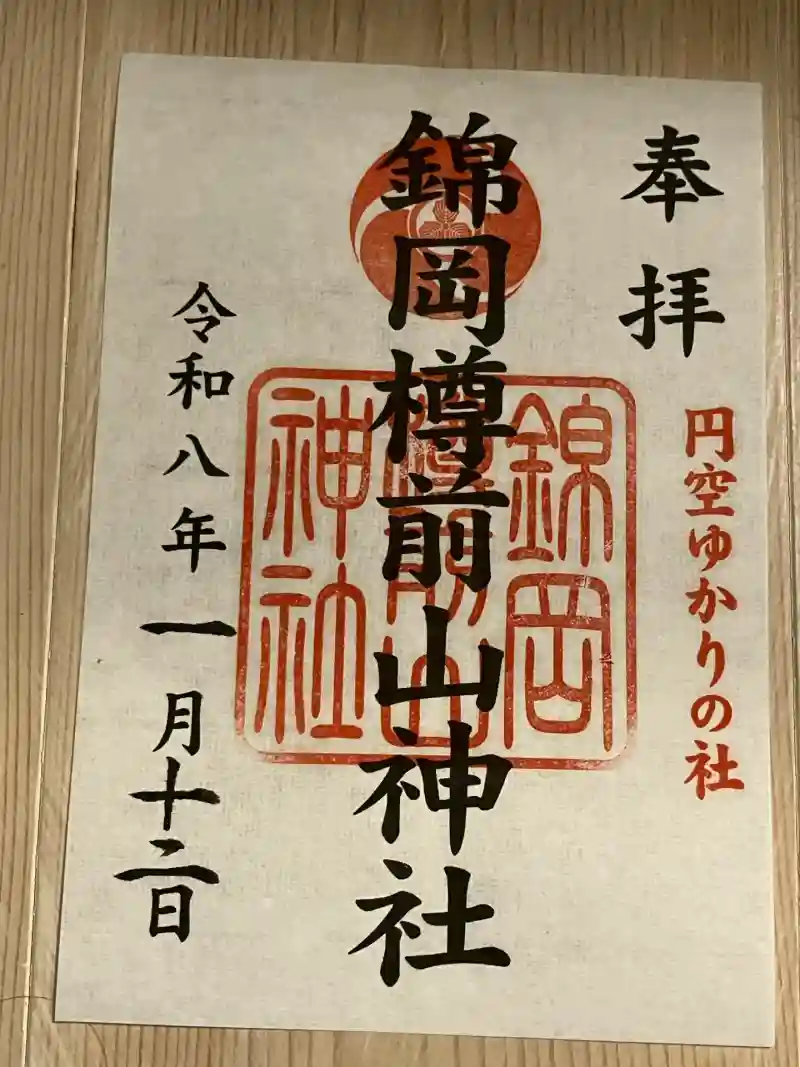 奉拝
円空ゆかりの社
錦岡樽前山神社
錦岡
樽前山
神社
令和八年一月十二日